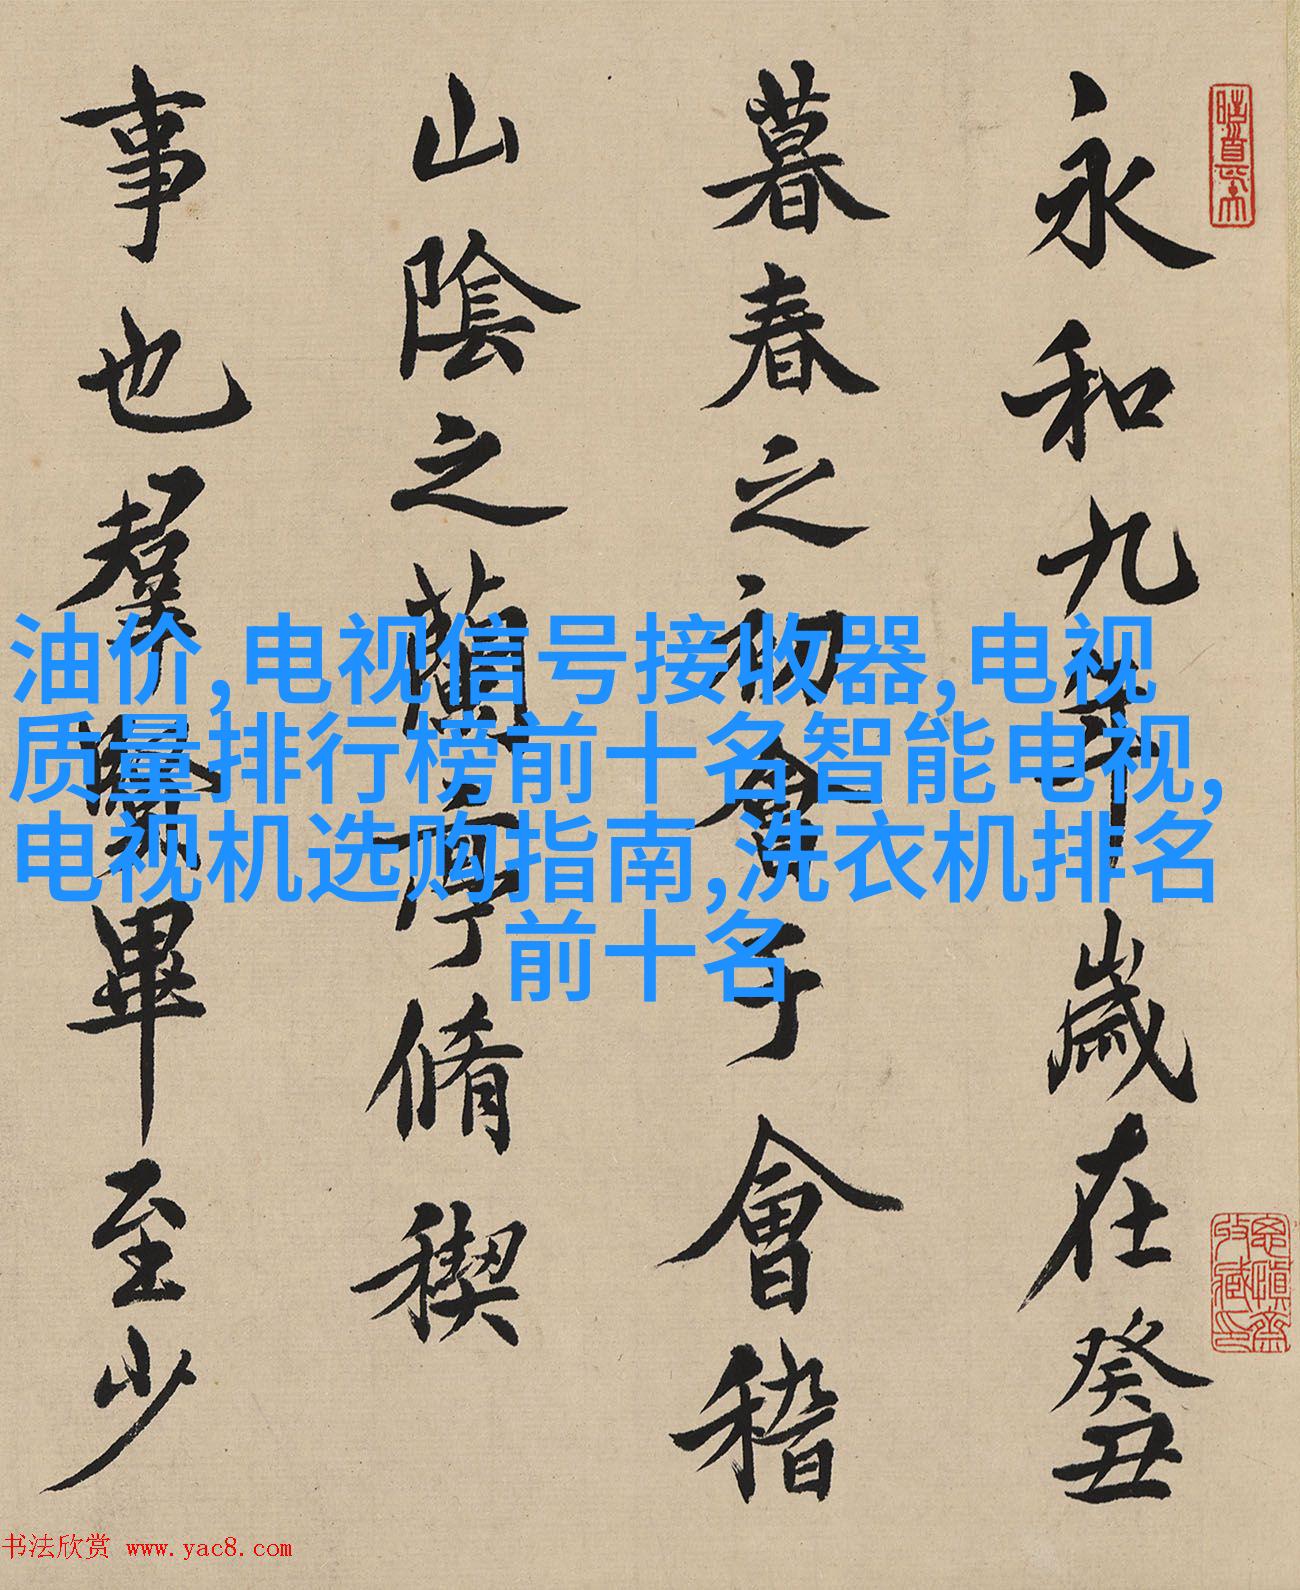 永和九年歲在癸丑
暮春之初會于會稽
山陰之蘭亭脩稧
事也羣賢畢至少
油价,电视信号接收器,电视
质量排行榜前十名智能电视,
电视机选购指南,洗衣机排名
前十名
书法欣赏 www.yac8.com